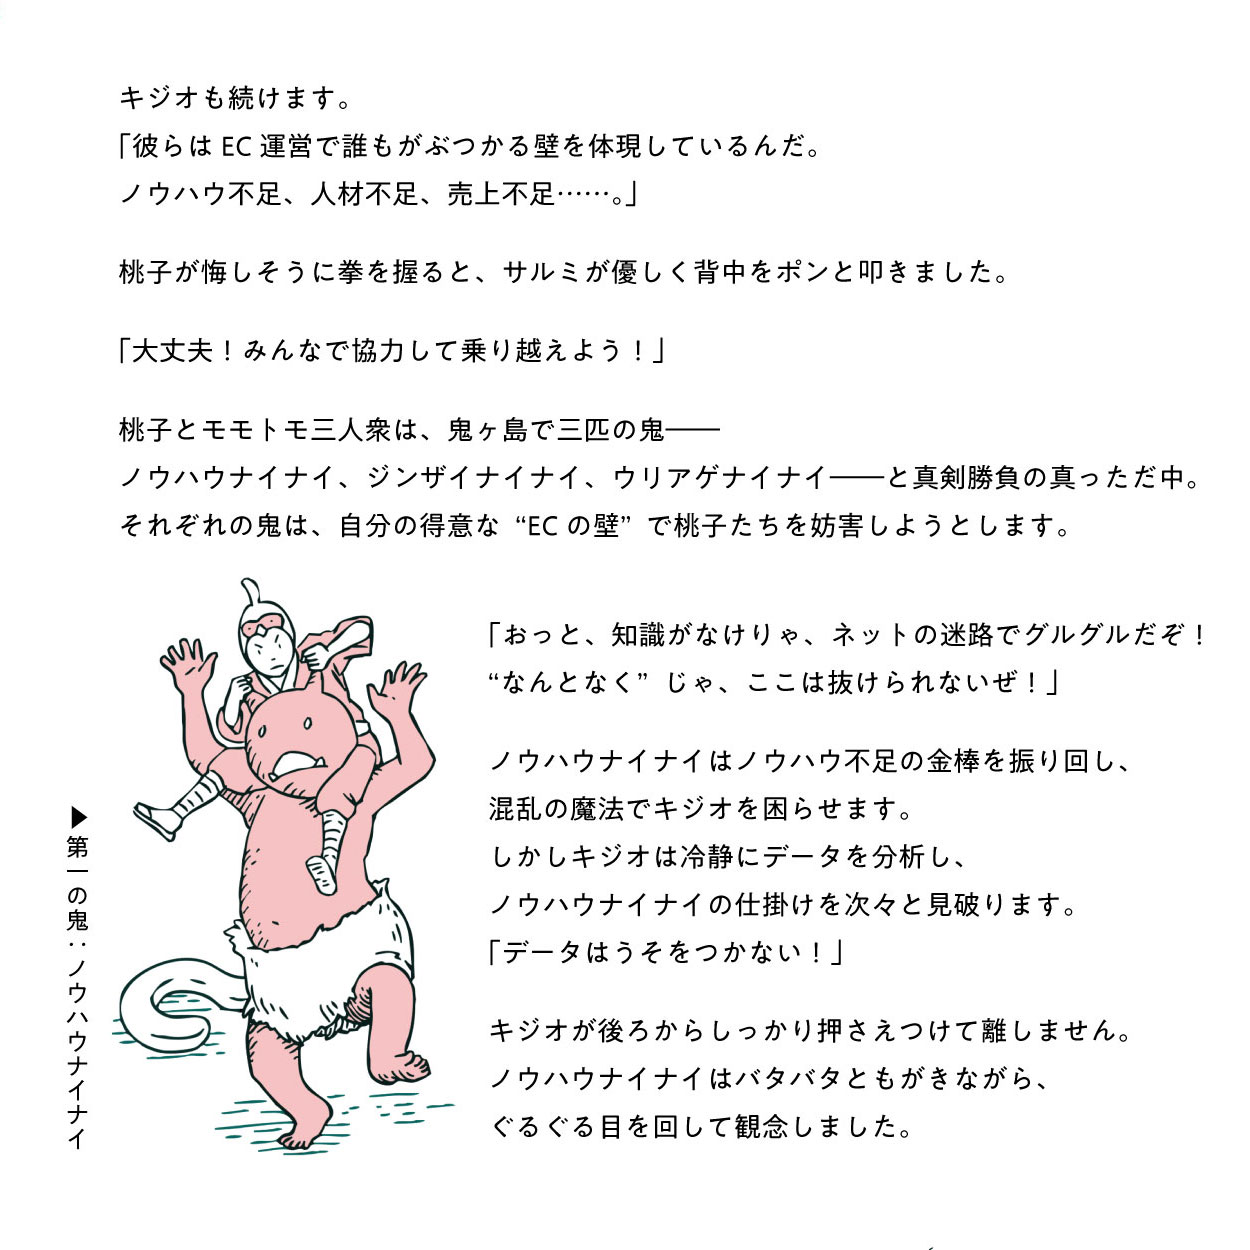 キジオも続けます。
「彼らは EC 運営で誰もがぶつかる壁を体現しているんだ。
ノウハウ不足、人材不足、売上不足……。」
桃子が悔しそうに拳を握ると、サルミが優しく背中をポンと叩きました。
「大丈夫！みんなで協力して乗り越えよう！」
桃子とモモトモ三人衆は、鬼ヶ島で三匹の鬼――
ノウハウナイナイ、ジンザイナイナイ、ウリアゲナイナイ――と真剣勝負の真っただ中。
それぞれの鬼は、自分の得意な “EC の壁” で桃子たちを妨害しようとします。
「おっと、知識がなけりゃ、ネットの迷路でグルグルだぞ！
“なんとなく” じゃ、ここは抜けられないぜ！」
ノウハウナイナイはノウハウ不足の金棒を振り回し、
混乱の魔法でキジオを困らせます。
しかしキジオは冷静にデータを分析し、
ノウハウナイナイの仕掛けを次々と見破ります。
「データはうそをつかない！」
キジオが後ろからしっかり押さえつけて離しません。
ノウハウナイナイはバタバタともがきながら、
ぐるぐる目を回して観念しました。
▶第一の鬼：ノウハウナイナイ